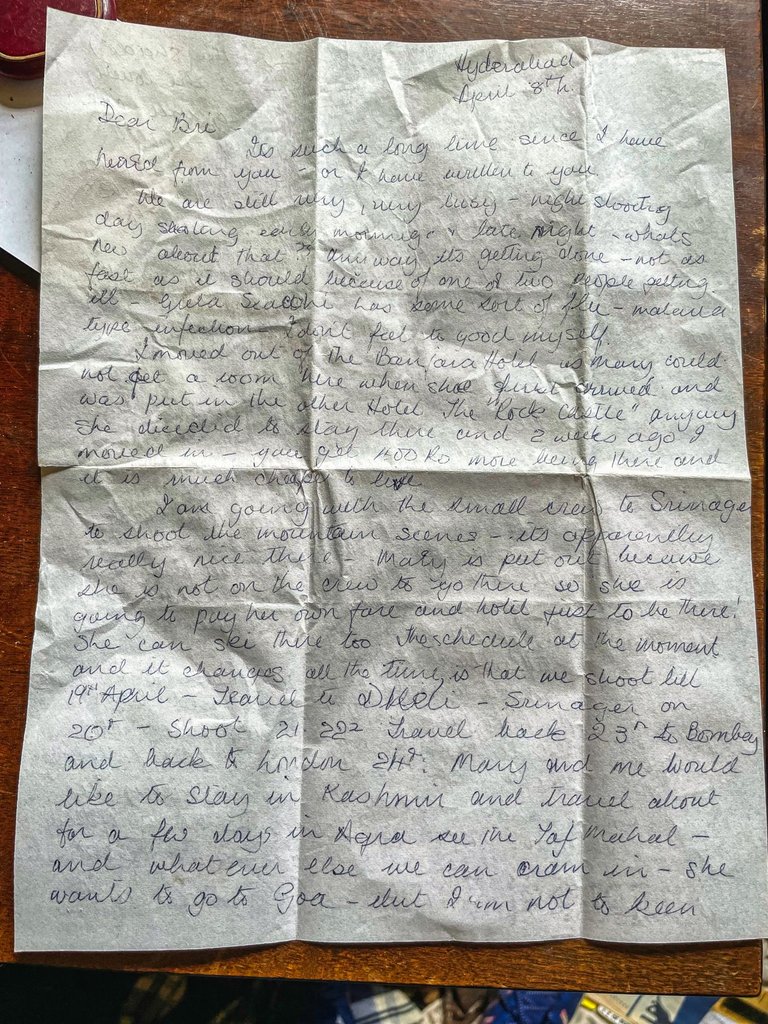 Hyderabad
April 8th.
Dear Bri -
Its such a long time since I have
heard from you - or I have written to you
We are still very, very busy - night shooting
day shooting early mornings & late night - whats
new about that? anyway its getting done - not as
fast as it should because of one of two people getting
ill - Greta Scacchi has some sort of flu - malaria
type infection - I dont feel to good myself.
I moved out of the Banjara Hotel as Mary could
not get a room here when she first arrived and
was put in the other Hotel The "Rock Castle" anyway
she decided to stay there and 2 weeks ago I
moved in - you get 400 Rs more being there and
it is much cheaper to live
I am going with the small crew to Srinager
to shoot the mountain scenes - its apparently
really nice there - Mary is put out because
she is not on the crew to go there so she is
going to pay her own fare and hotel just to be there!
She can ski there too the schedule at the moment
and it changes all the time, is that we shoot till
19th April - Travel to Dheli - Srinager on
20th - Shoot 21 22nd Travel back 23rd to Bombay
and back to London 24th. Mary and me would
like to stay in Kashmir and travel about
for a few days in Agra see the Taj Mahal -
and what ever else we can cram in - she
wants to go to Goa - but I'm not to keen